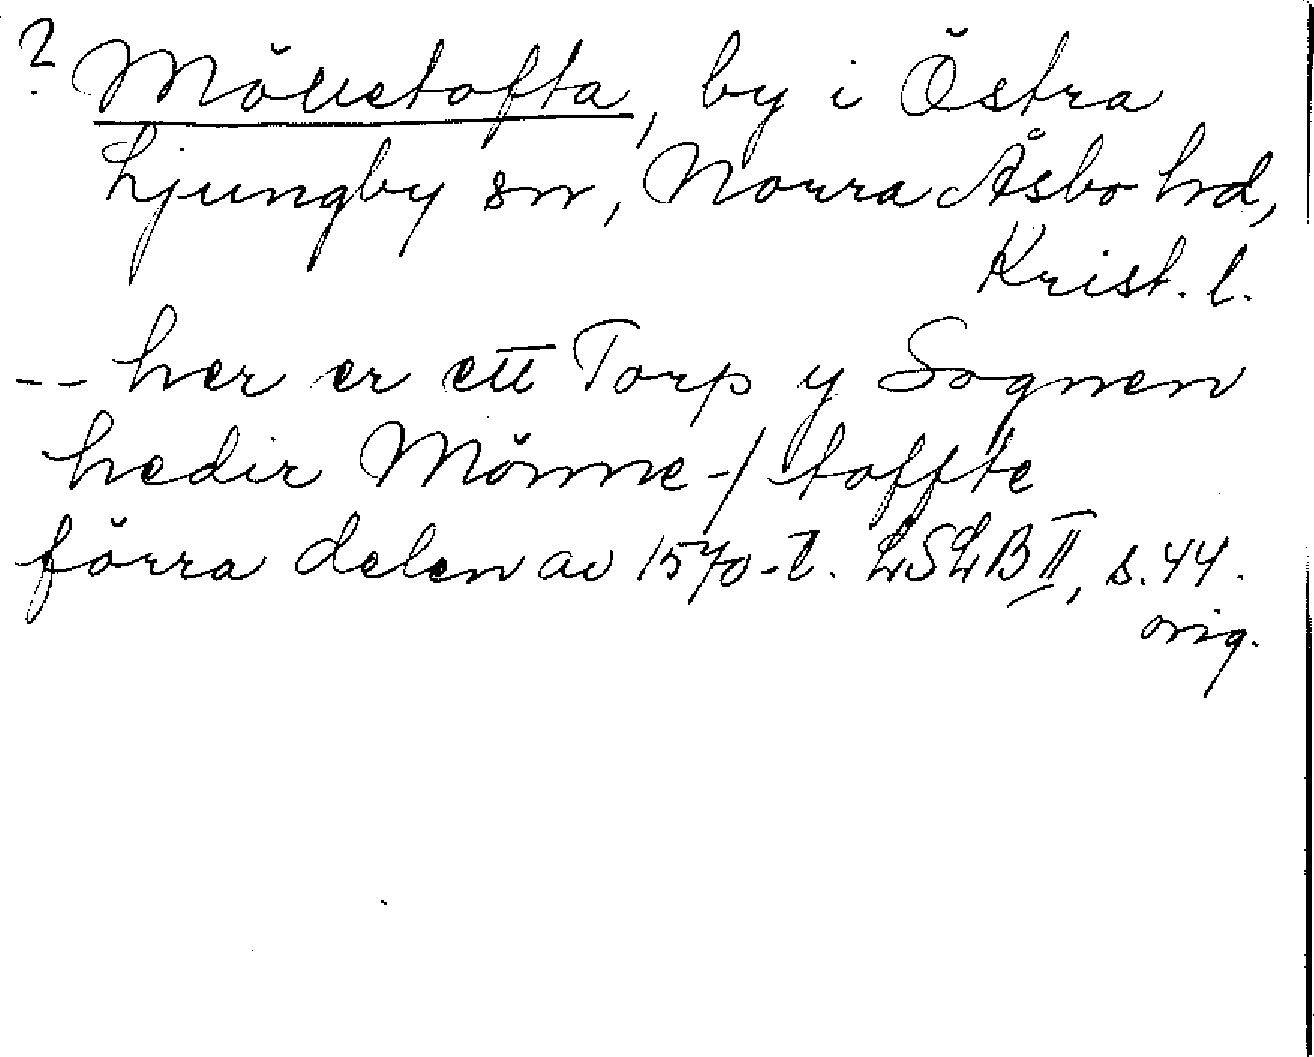 ? Möllletofta, by i Östra
Ljungby sn, Norra Åsbo hd,
Krist. l.
-- her er ett Torp y Sognen
hedir Mönne-/toffte
förra delen av 1570-t. LSLB II, s. 44.
orig.